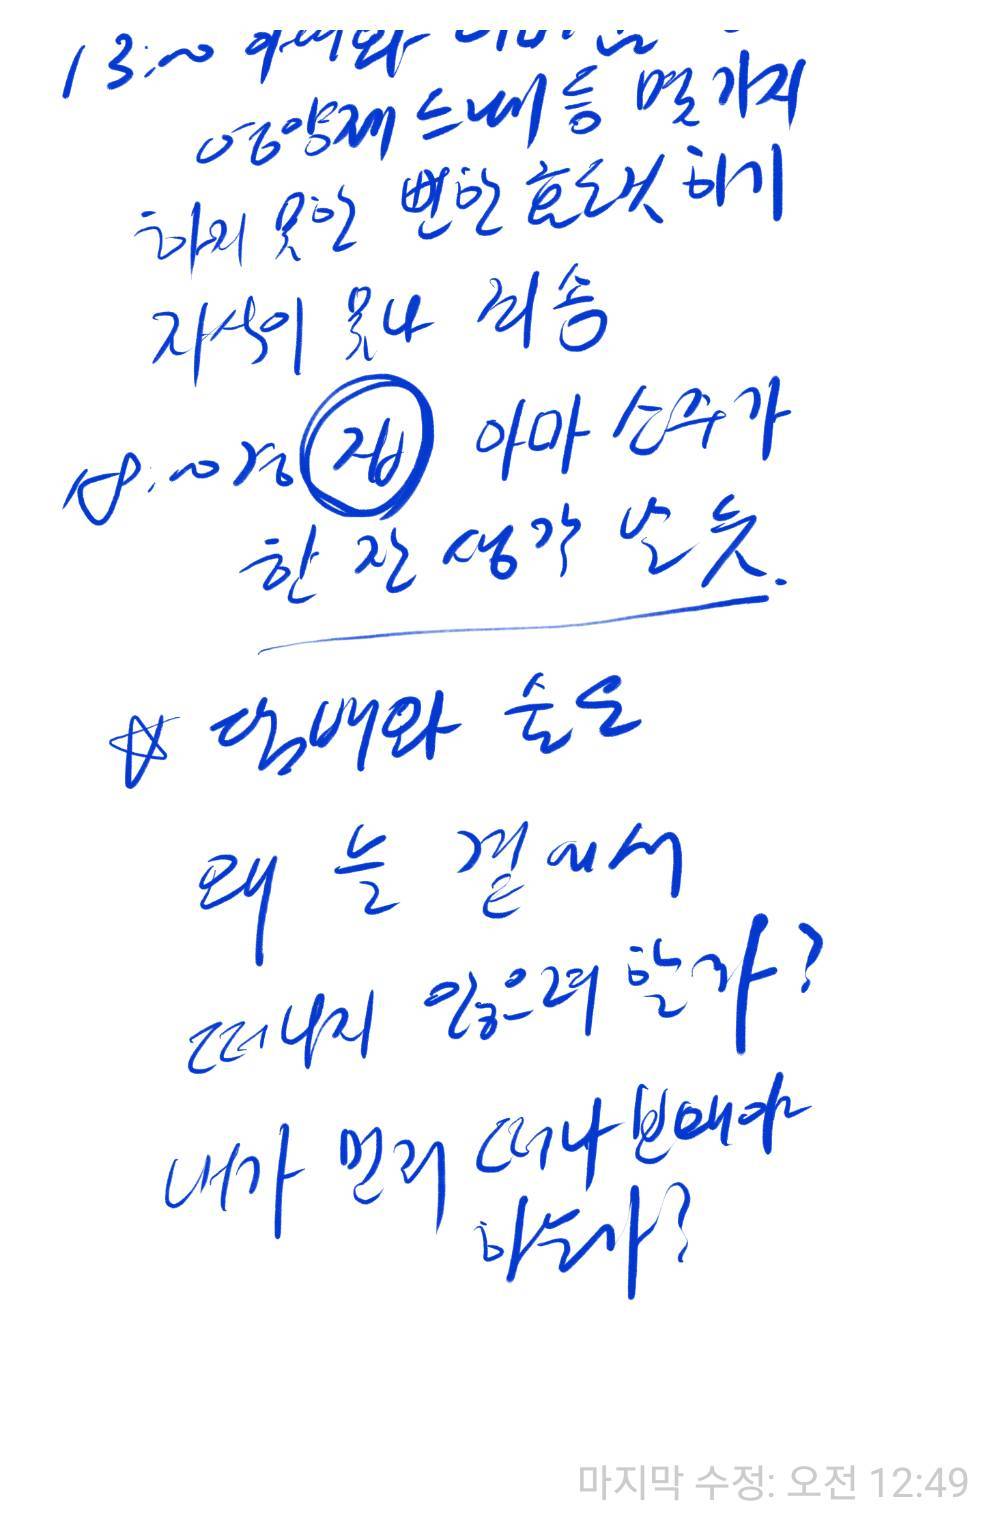 13:~
영양제 스낵 등 몇가지
하지 못한 뻔한 효도것 하기
자식이 못나 죄송
18:~경 집 아마 소주가
한 잔 생각 날 듯.
☆ 담배와 술도
왜 늘 곁에서
떠나지 않으려 할까?
내가 멀리 떠나보내야
하는가?
마지막 수정: 오전 12:49